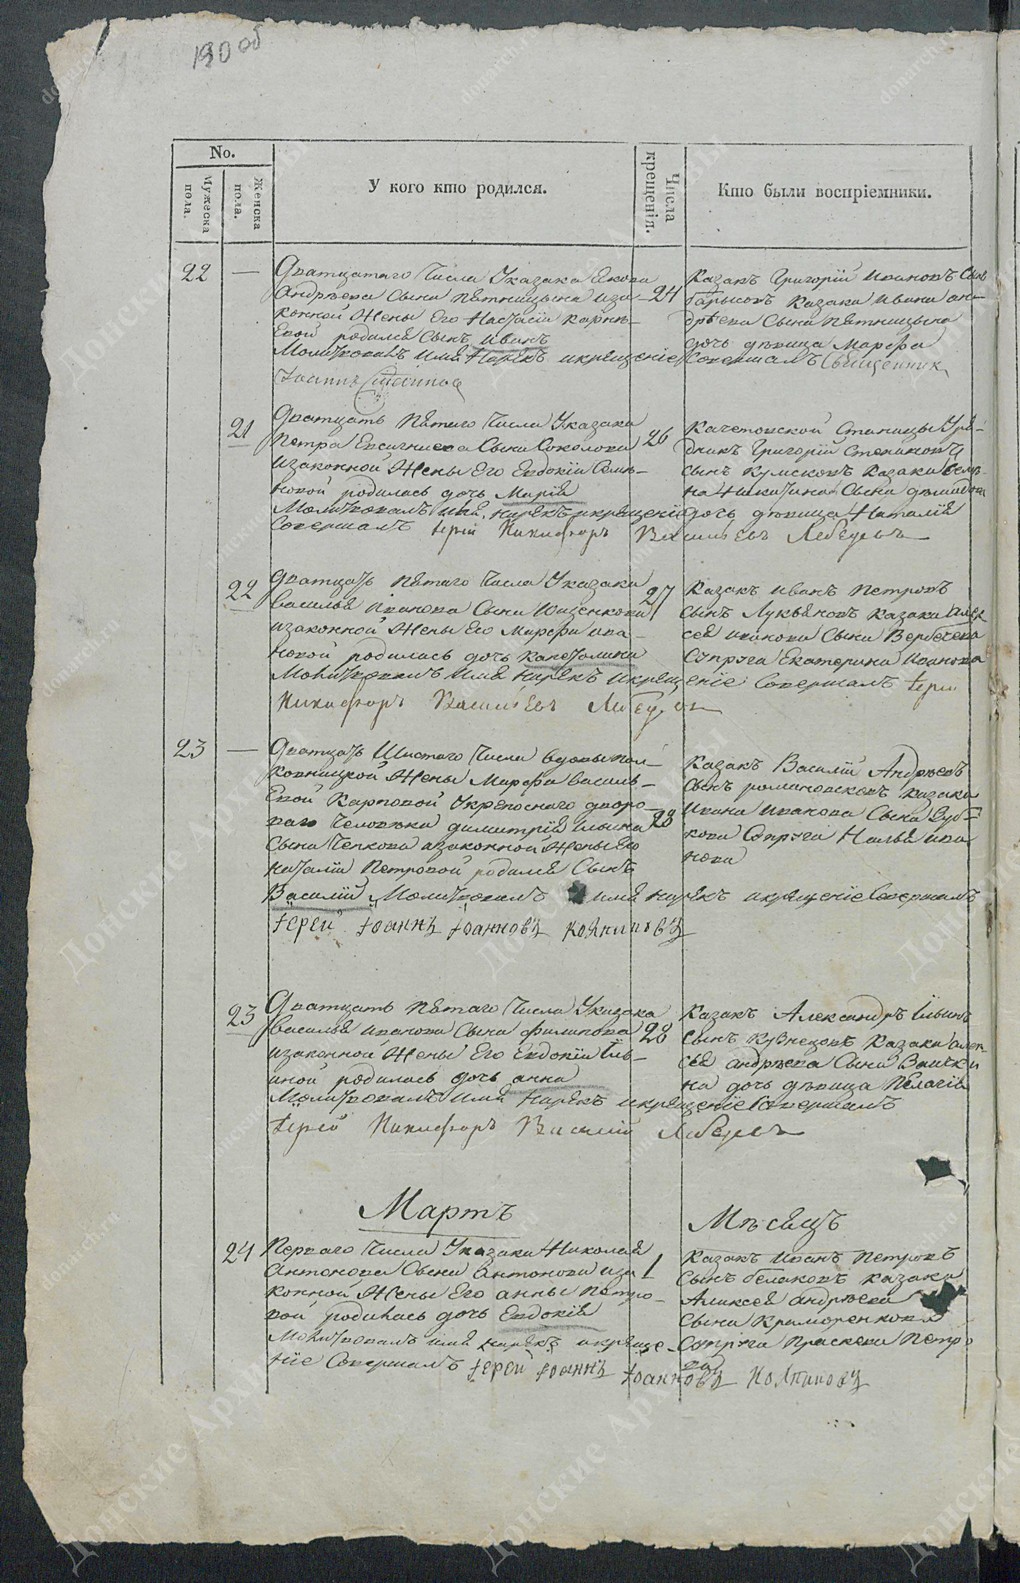 190 об
No.
Мужеска пола.
Женска пола.
У кого кто родился.
Числа крещенія.
Кто были воспріемники.
22 —
Дватцатаго Числа Указака Якова
Андрѣева Сына Пятницына иза-
конной Жены Его Настасіи Карнѣ-
евой родился Сынъ Иванъ
Молитвовалъ имя Нарекъ икрещеніе Совершалъ Священник
Іоаннъ
24
Казакъ Григорій Ивановъ Сынъ
Казака Ивана Ан-
дрѣева Сына Пятницына
дочь дѣвица Марфа
21
Дватцать Пятаго Числа Указака
Петра Евсигнеева Сына Соколова
изаконной Жены Его Евдокіи Семе-
новой родилась дочь Марія
Молитвовалъ имя нарекъ икрещеніе
Совершалъ Іерей Никифоръ Васильевъ Лебедевъ
26
Качетовской Станицы Уря-
дникъ Григорій Степановъ
Сынъ Кумсковъ Казака
на Никитина Сына
дочь дѣвица Наталія
22
Дватцать пятаго Числа Указака
Василья Иванова Сына Ищенкова
изаконной Жены Его Марфы Ива-
новой родилась дочь Капетолина
Молитвовалъ имя нарекъ икрещеніе Совершалъ Іерей
Никифоръ Васильевъ Лебедевъ
27
Казакъ Иванъ Петровъ
Сынъ Лукьяновъ Казака Алек
сея Иванова Сына Вербечева
Супруга Екатерина Иванова
23 —
Дватцать Шистаго Числа вдовы пол-
ковницкой Жены Марфы Василь-
евой Карповой Укрепоснаго дворо-
ваго Человека Димитрія Ильина
Сына Чепкова изаконной Жены Его
Наталіи Петровой родился Сынъ
Василій Молитвовалъ имя нарекъ икрещеніе Совершалъ
Іерей Іоаннъ Іоанновъ Колпиковъ
28
Казакъ Василій Андрѣевъ
Сынъ романовсковъ казака
Ивана Иванова Сына Зуб-
кова Супруга Ива
нова
23
Дватцать Пятаго Числа Указака
Василья Иванова Сына Филипова
изаконной Жены Его Евдокіи Іль-
иной родилась дочь Анна
Молитвовалъ имя нарекъ икрещеніе Совершалъ
Іерей Никифоръ Василій Лебедевъ
28
Казакъ Александръ Ільинъ
Сынъ Кузнецовъ Казака Алек-
сѣя Андрѣева Сына Заички
на дочь дѣвица Пелагія
Мартъ Мѣсяцъ
24
Перваго Числа Указака Николая
Антонова Сына Антонова иза
конной Жены Его Анны Петро-
вой родилась дочь Евдокія
Молитвовалъ имя нарекъ икреще-
ніе Совершалъ Іерей Іоаннъ Іоанновъ Колпиковъ
1
Казакъ Иванъ Петровъ
Сынъ белаковъ казака
Алексея Андрѣева
Сына Краморенкова
Супруга Прасковья Петро
ва